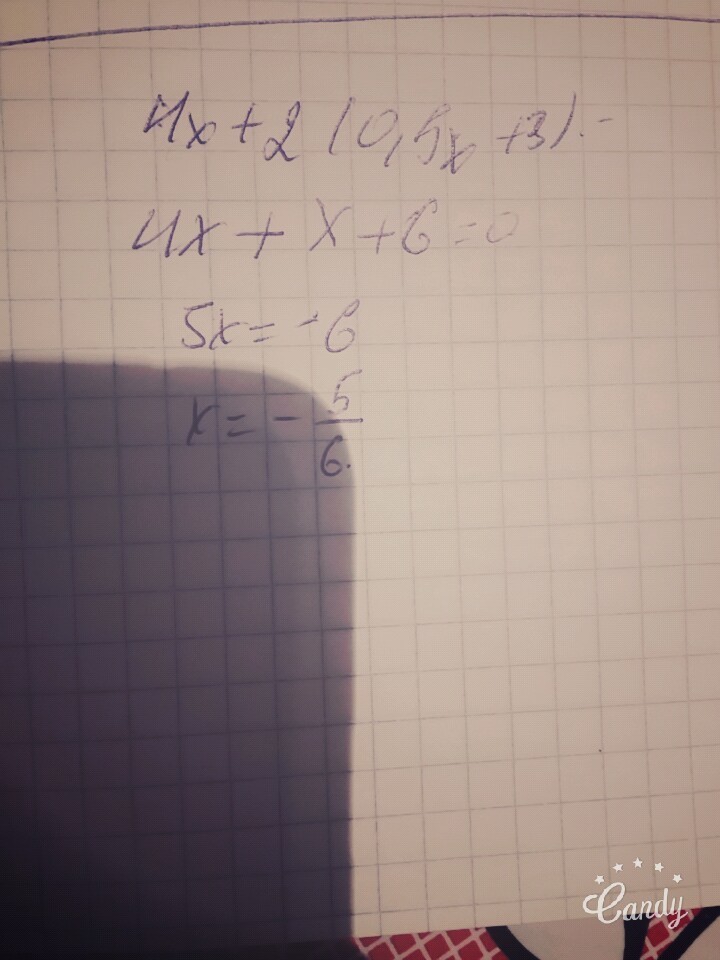 4x + 2 (0,5x + 3) =
4x + x + 6 = 0
5x = -6
x = - 5/6.
Candy